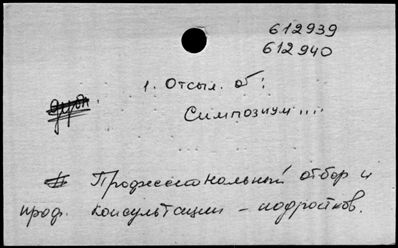 612939
612940
1. Отсыл. об:
Симпозиум....
Профессиональный отбор и
проф. консультации - подростков.